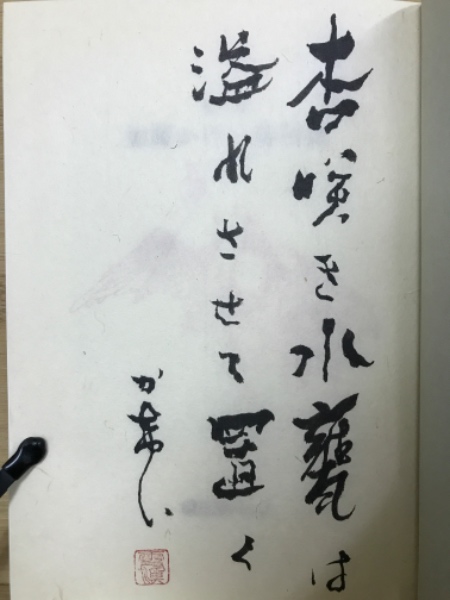 杏咲き水甕は
溢れさせて置く
かあい